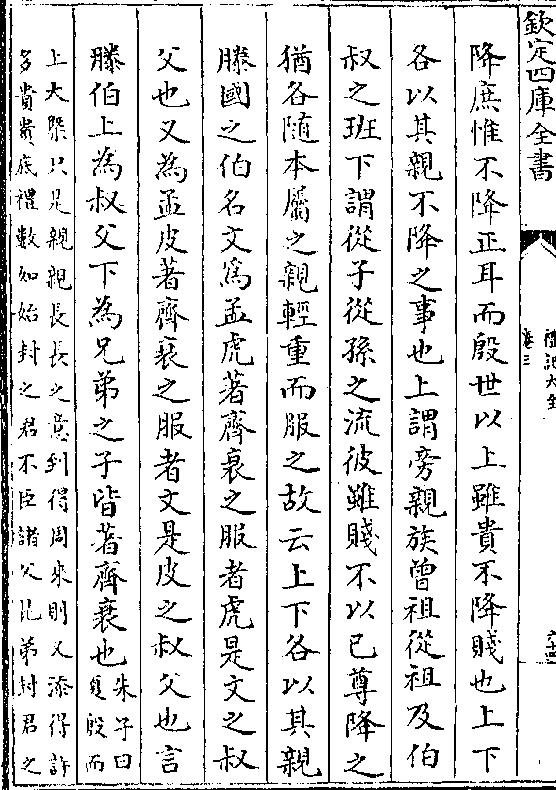 欽定四庫全書
禮記大全
卷三
降庶惟不降正耳而殷世以上雖貴不降賤也上下
各以其親不降之事也上謂旁親族曾祖從祖及伯
叔之班下謂從子從孫之流彼雖賤不以已尊降之
猶各隨本屬之親輕重而服之故云上下各以其親
滕國之伯名文為孟虎著齊衰之服者虎是文之叔
父也又為孟皮著齊衰之服者文是皮之叔父也言
滕伯上為叔父下為兄弟之子皆著齊衰也
朱子曰
夏殷而
上大槩只是親親長長之意到得周來則又添得許
多貴貴底禮數如始封之君不臣諸父昆弟封君之